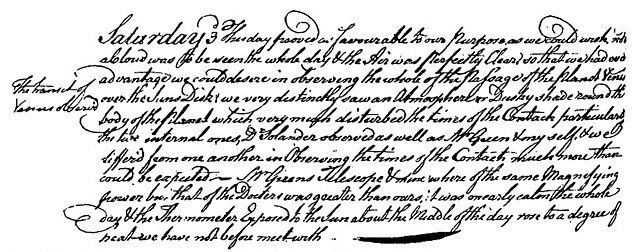 Saturday 3d This day prooved as favourable to our purpose as we could wish, not
a Cloud was to be seen the whole day & the Air was perfectly clear, so that we had every
advantage we could desire in observing the whole of the passage of the planet Venus
over the Suns Disk: we very distinctly saw an Atmosphere or Dusky shade round the
body of the planet which very much disturbed the times of the Contacts particularly
the two internal ones. Dr Solander observed as well as Mr Green & my self, & we
differ'd from one another in Observing the times of the Contacts much more than
could be expected.— Mr Greens Telescope & mine where of the same Magnifying
power but that of the Doctors was greater than ours, it was nearly calm the whole
day & the Thermometer Exposed to the Sun about the Middle of the day rose to a degree of
heat we have not before met with
The transit of
Venus observd